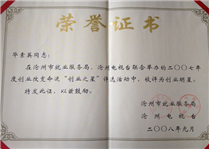 荣誉证书
华素英同志：
在沧州市就业服务局、沧州电视台联合举办的二〇〇七年
度创业改变命运“创业之星”评选活动中，被评为创业明星。
特发此证，以资鼓励。
沧州市就业服务局
沧州电视台
二〇〇八年元月